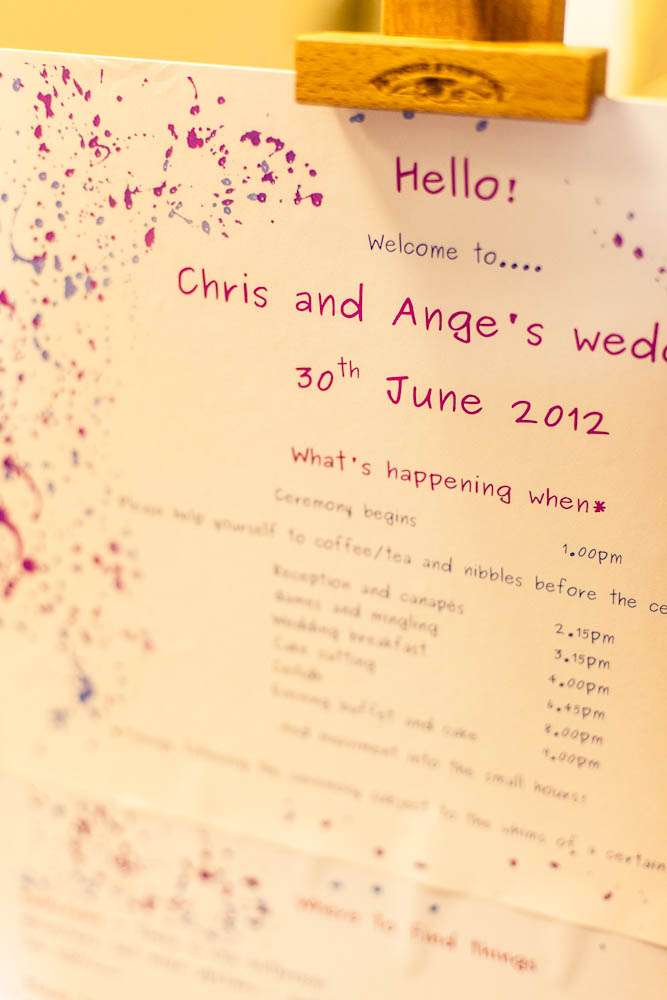 Hello!
Welcome to....
Chris and Ange's wedd
30th June 2012
What's happening when*
Ceremony begins 1.00pm
Please help yourself to coffee/tea and nibbles before the ce
Reception and canapés 2.15pm
Games and mingling 3.15pm
Wedding breakfast 4.00pm
Cake cutting 5.45pm
Ceilidh 8.00pm
Evening buffet and cake 9.00pm
and merriment into the small hours!
following the ceremony subject to the whims of a certain
Where to find things